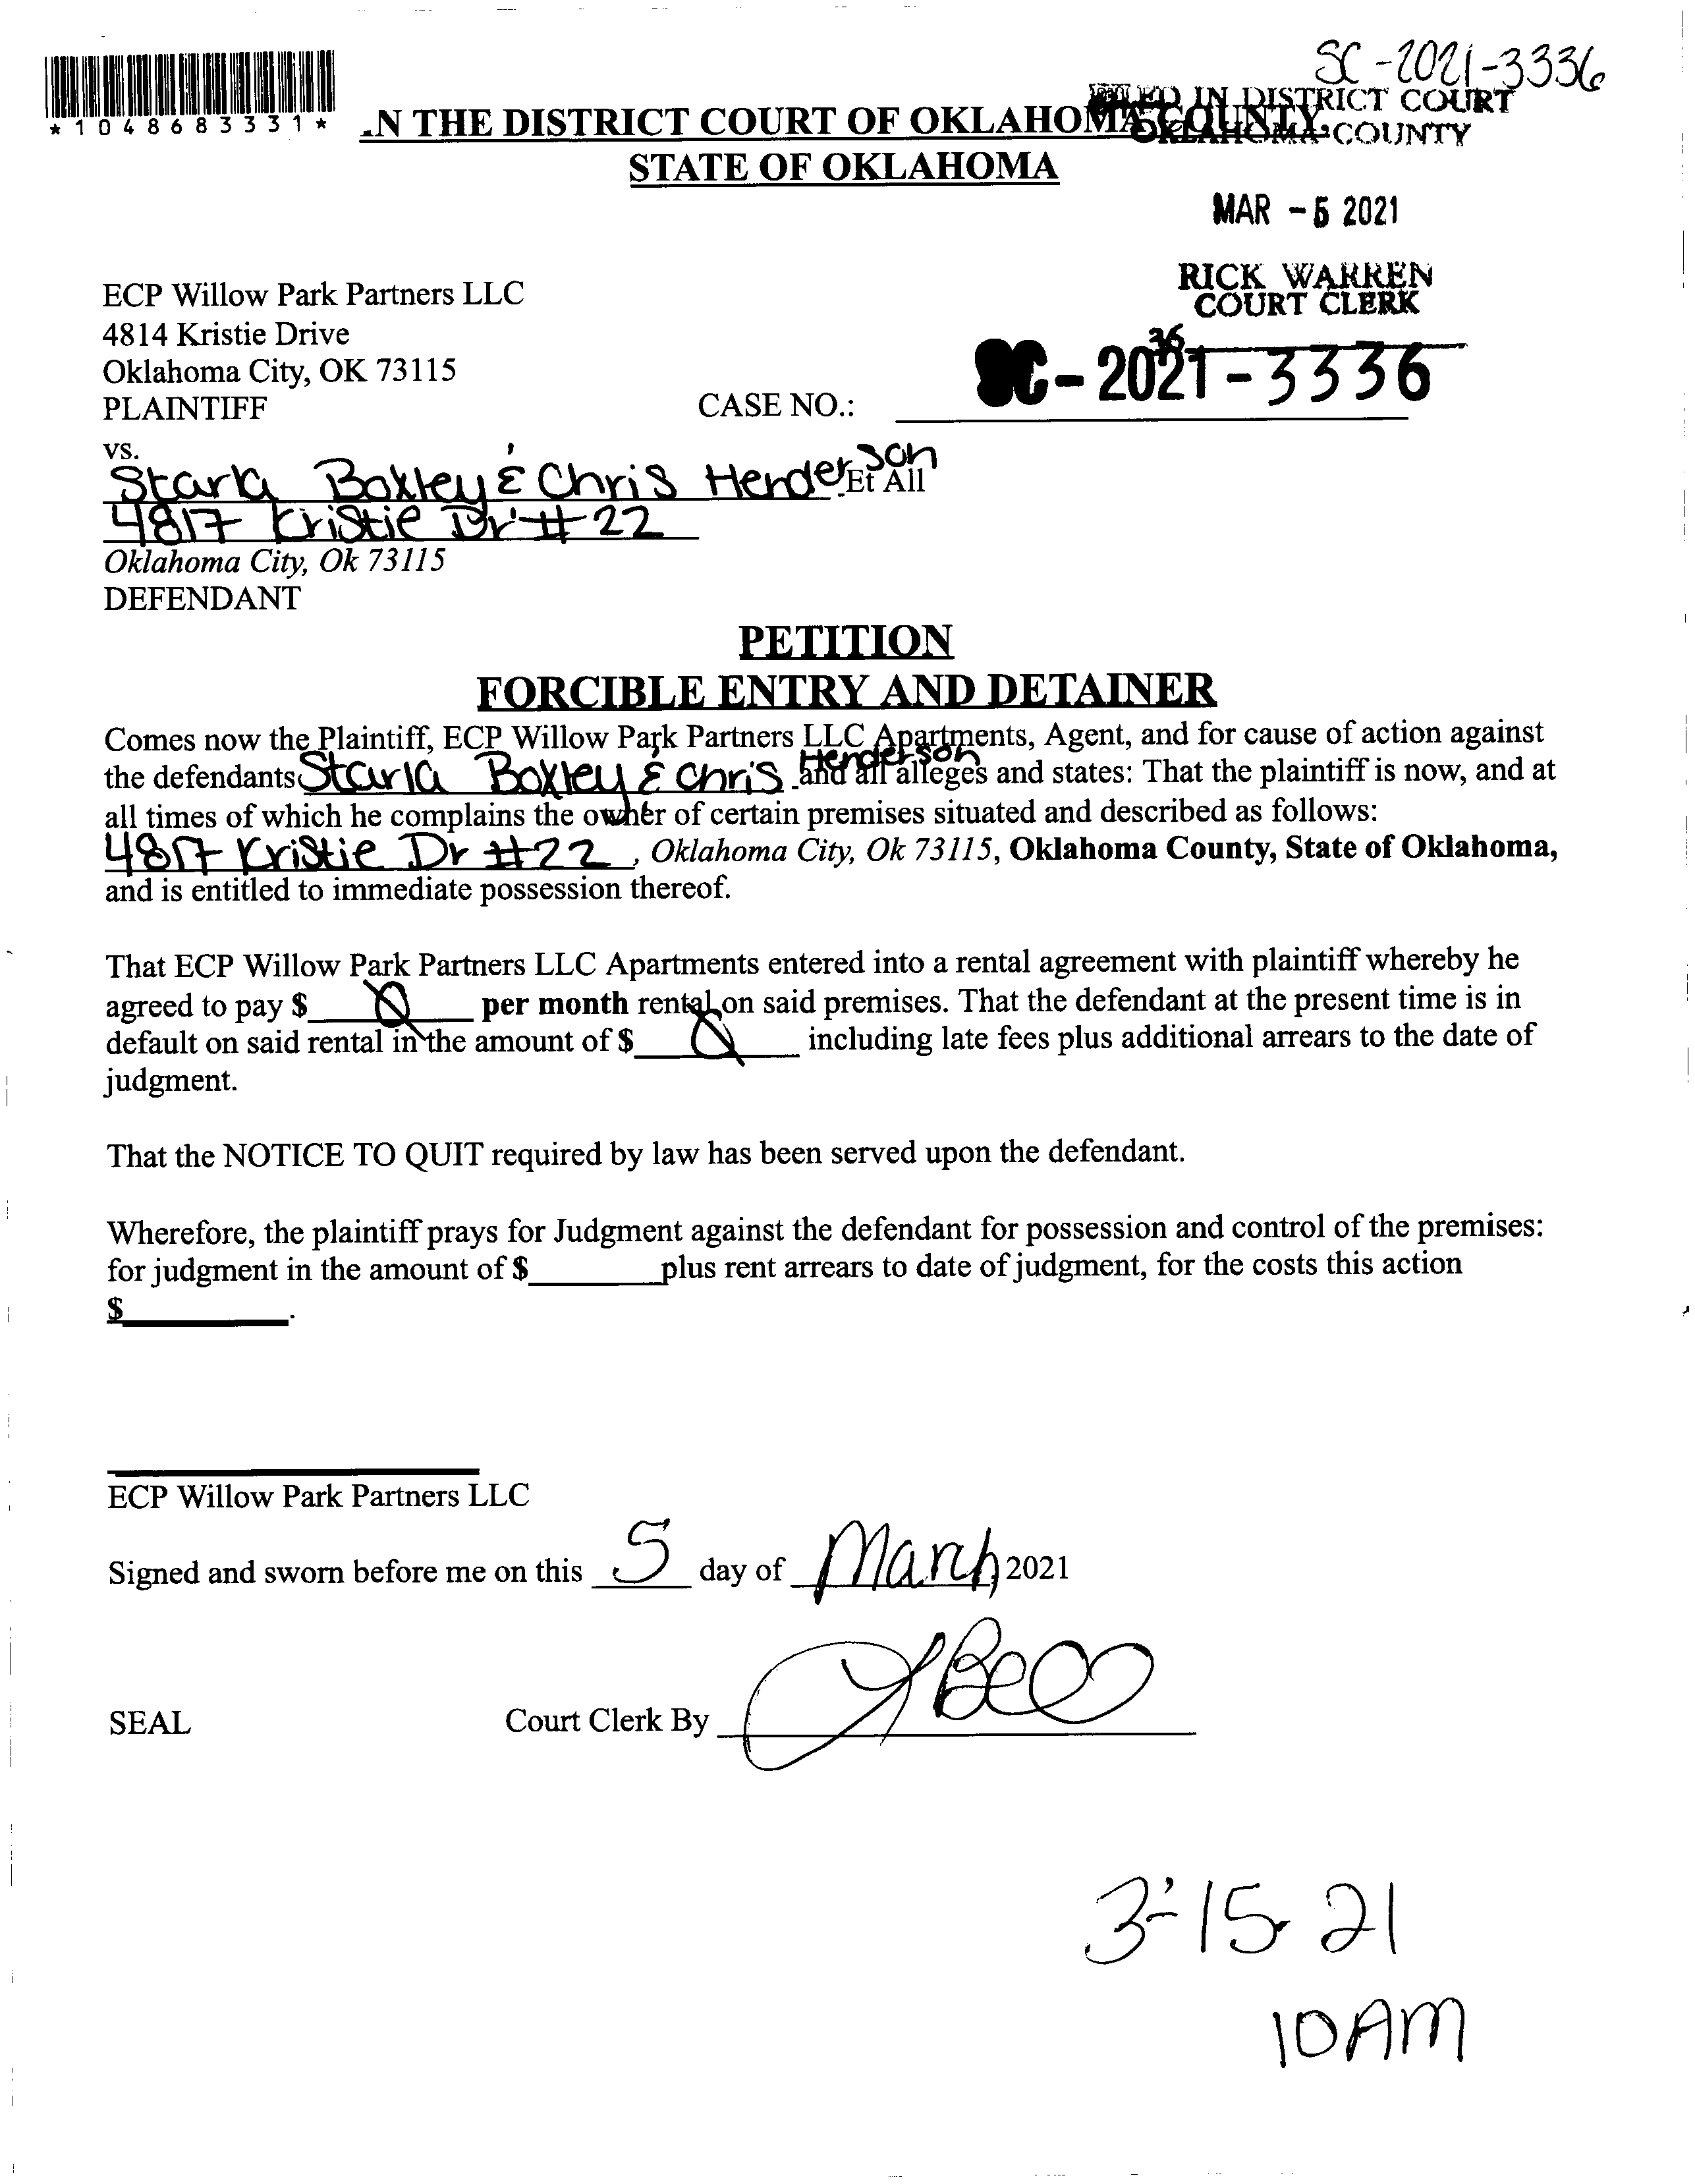 SC-2021-3336
*1048683331*
.N THE DISTRICT COURT OF OKLAHOMA COUNTY
FILED IN DISTRICT COURT
OKLAHOMA COUNTY
STATE OF OKLAHOMA
MAR - 5 2021
RICK WARREN
COURT CLERK
36
ECP Willow Park Partners LLC
4814 Kristie Drive
Oklahoma City, OK 73115
PLAINTIFF
CASE NO.: SC-2021-3336
vs.
Starla Boxley & Chris Henderson Et All
4817 Kristie Dr #22
Oklahoma City, Ok 73115
DEFENDANT
PETITION
FORCIBLE ENTRY AND DETAINER
Comes now the Plaintiff, ECP Willow Park Partners LLC Apartments, Agent, and for cause of action against
the defendants Starla Boxley & Chris Henderson and all alleges and states: That the plaintiff is now, and at
all times of which he complains the owner of certain premises situated and described as follows:
4817 Kristie Dr #22, Oklahoma City, Ok 73115, Oklahoma County, State of Oklahoma,
and is entitled to immediate possession thereof.
That ECP Willow Park Partners LLC Apartments entered into a rental agreement with plaintiff whereby he
agreed to pay $ 0 per month rental on said premises. That the defendant at the present time is in
default on said rental in the amount of $ 0 including late fees plus additional arrears to the date of
judgment.
That the NOTICE TO QUIT required by law has been served upon the defendant.
Wherefore, the plaintiff prays for Judgment against the defendant for possession and control of the premises:
for judgment in the amount of $________plus rent arrears to date of judgment, for the costs this action
$__________.
ECP Willow Park Partners LLC
Signed and sworn before me on this 5 day of March, 2021
SEAL Court Clerk By
3-15-21
10AM